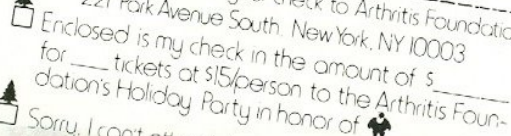 check to Arthritis Foundatio
221 Park Avenue South, New York, NY 10003
Enclosed is my check in the amount of $______
for ____ tickets at $15/person to the Arthritis Foun-
dation's Holiday Party in honor of
Sorry, I can't